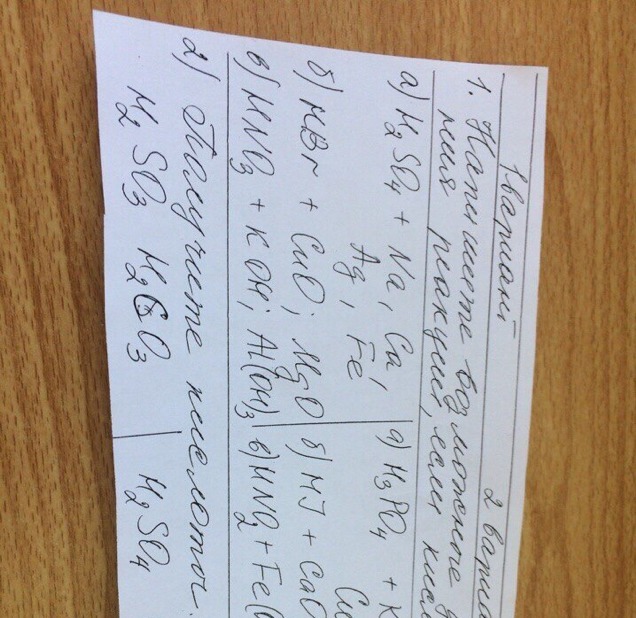 1 вариант 2 вариа
1. Напишите возможные у
ния реакций, если кисл
а) H2SO4 + Na, Ca, а) H3PO4 + K
Ag, Fe Cu
б) HBr + CuO; MgO б) HJ + CaO
в) HNO3 + KOH; Al(OH)3 в) HNO2 + Fe(O
2) Получите кислоты.
H2SO3 H2CO3 H2SO4